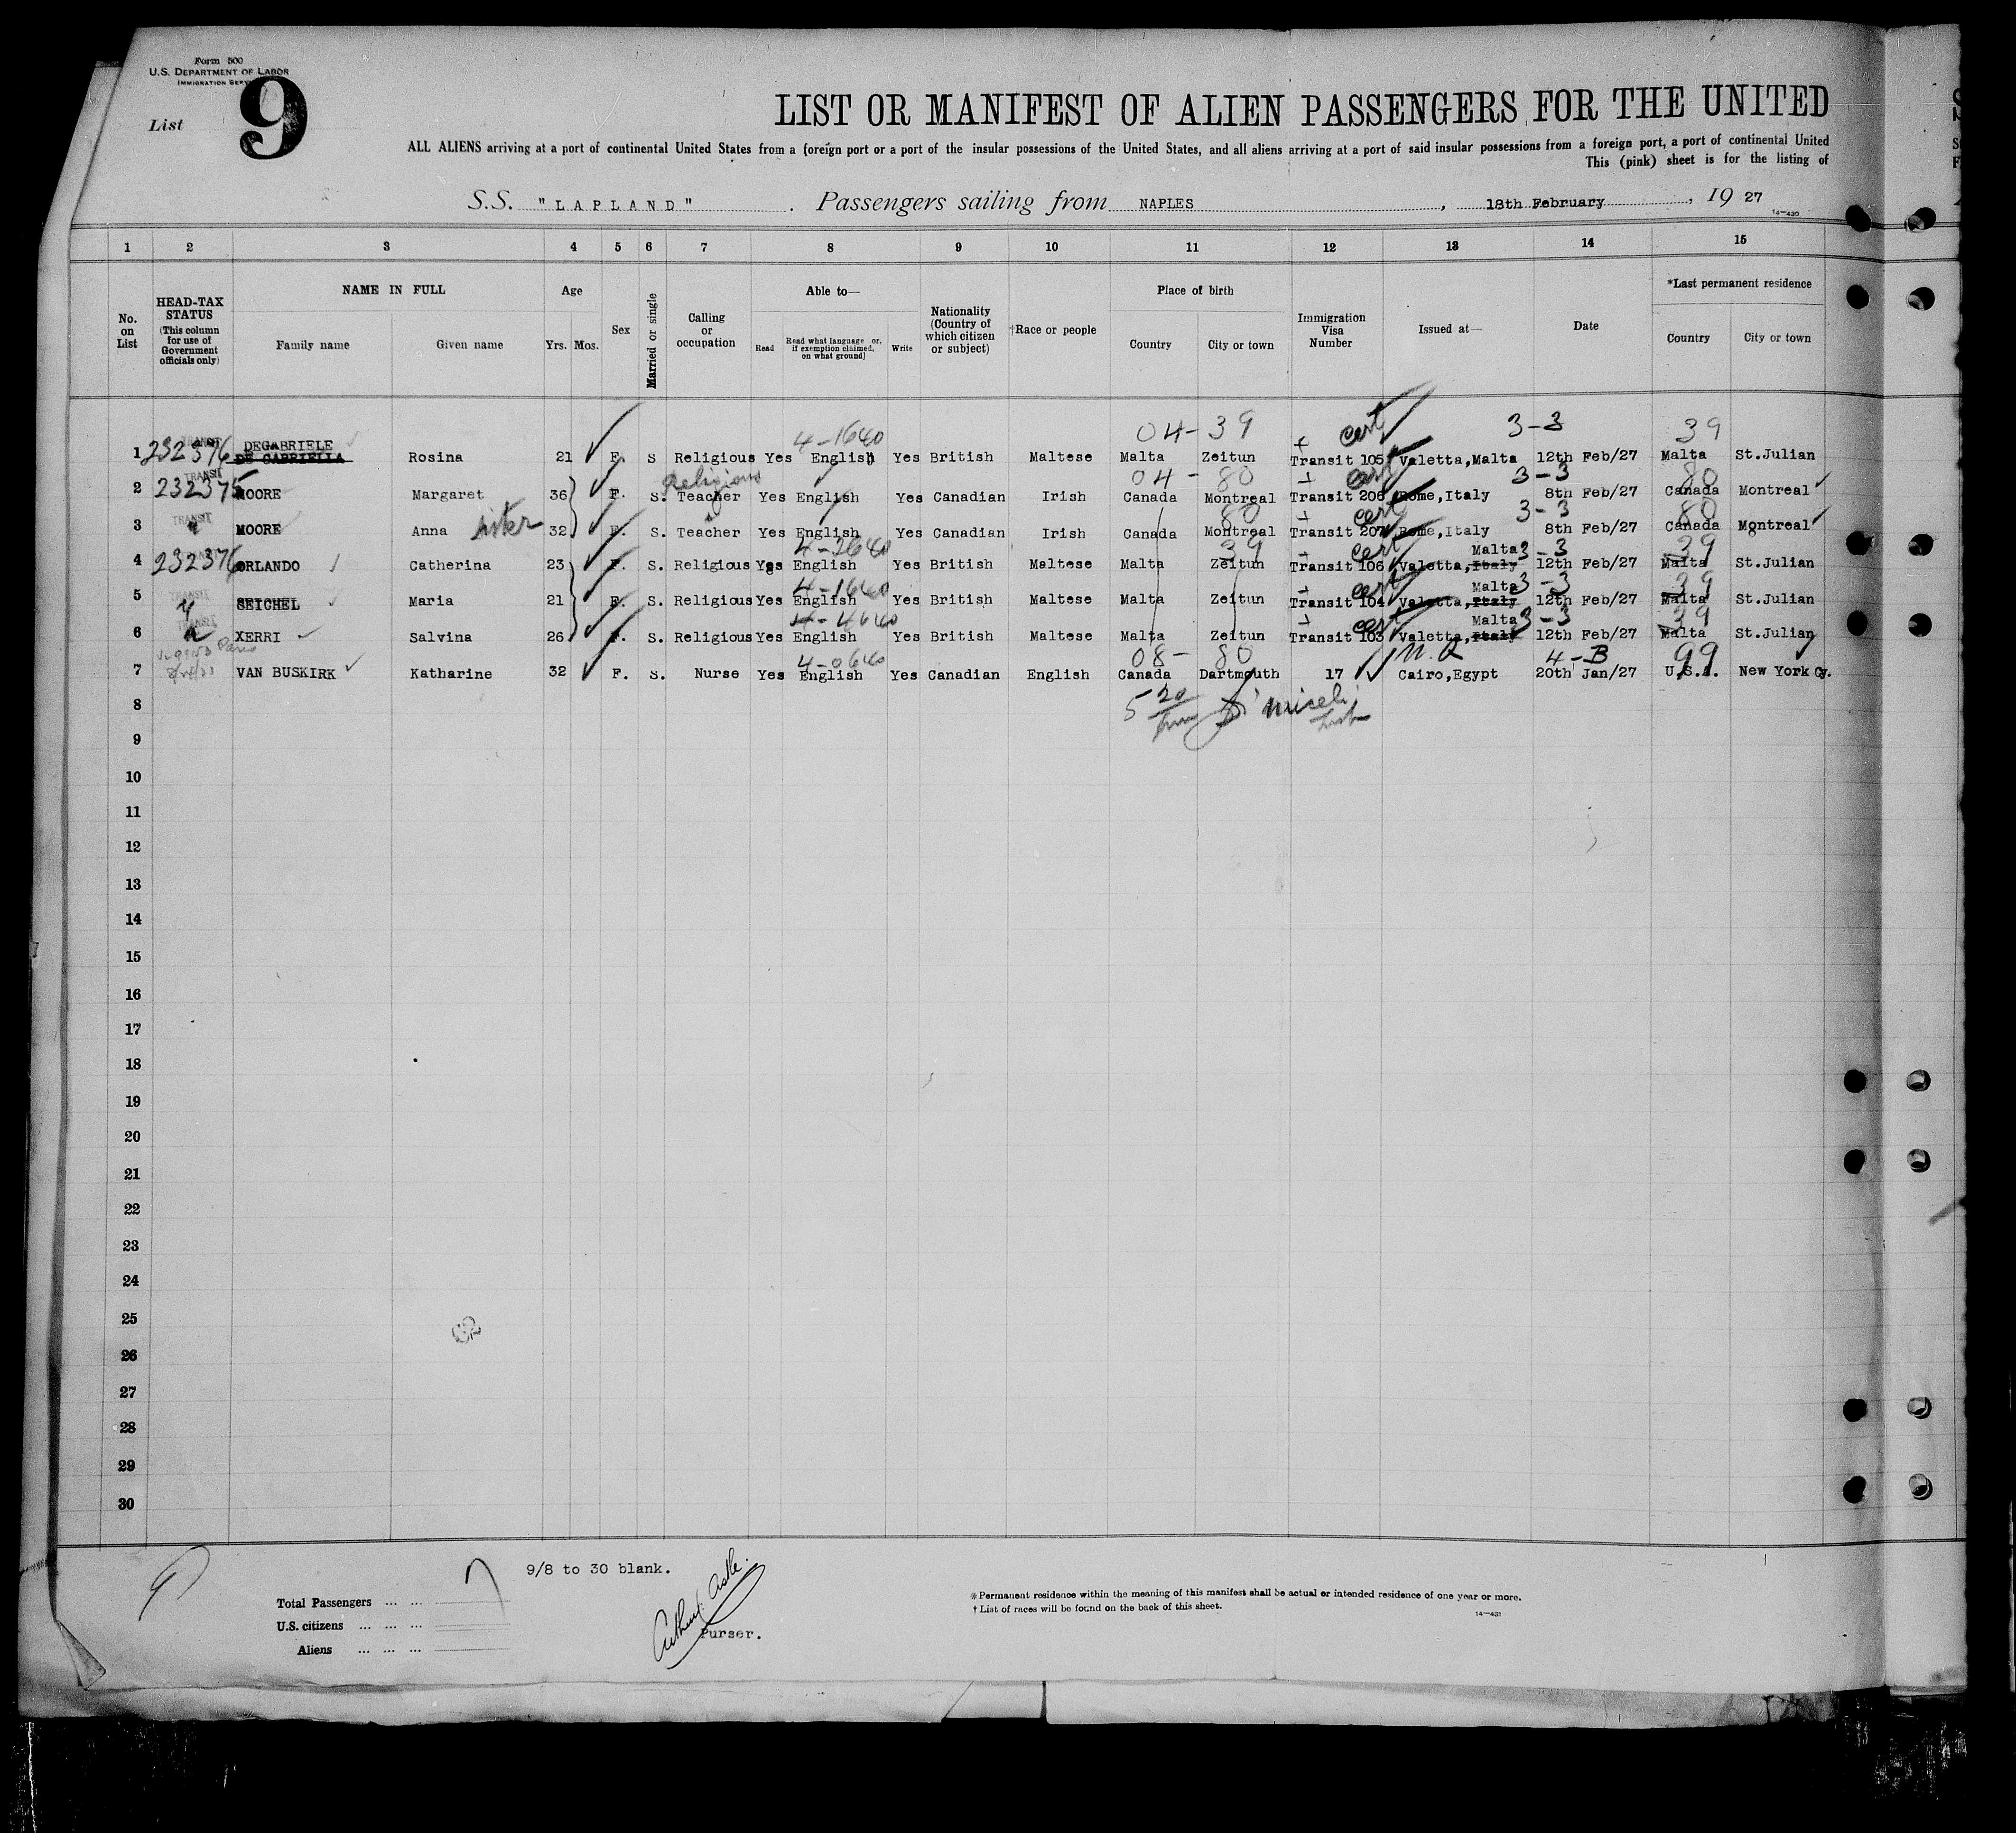 Form 500
U.S. DEPARTMENT OF LABOR
IMMIGRATION
List 9
LIST OR MANIFEST OF ALIEN PASSENGERS FOR THE UNITED
ALL ALIENS arriving at a port of continental United States from a foreign port or a port of the insular possessions of the United States, and all aliens arriving at a port of said insular possessions from a foreign port, a port of continental United
This (pink) sheet is for the listing of
S.S. "LAPLAND". Passengers sailing from NAPLES, 18th February, 19 27
14-430
1 2 3 4 5 6 7 8 9 10 11 12 13 14 15
No. on List
HEAD-TAX STATUS (This column for use of Government officials only)
NAME IN FULL
Family name Given name
Age
Yrs. Mos.
Sex
Married or single
Calling or occupation
Able to—
Read Read what language or, if exemption claimed, on what ground Write
Nationality (Country of which citizen or subject)
†Race or people
Place of birth
Country City or town
Immigration Visa Number
Issued at—
Date
*Last permanent residence
Country City or town
4-1640 04-39 cert 3-3 39
TRANSIT DEGABRIELE
1 232376 DE GABRIELLA Rosina 21 F. S Religious Yes English Yes British Maltese Malta Zeitun Transit 105 Valetta,Malta 12th Feb/27 Malta St.Julian
TRANSIT Religious 04-80 cert 3-3 80
2 232375 MOORE Margaret 36 F. S. Teacher Yes English Yes Canadian Irish Canada Montreal Transit 206 Rome,Italy 8th Feb/27 Canada Montreal
TRANSIT 80 cert 3-3 80
3 " MOORE Anna sister 32 F. S. Teacher Yes English Yes Canadian Irish Canada Montreal Transit 207 Rome,Italy 8th Feb/27 Canada Montreal
4-2640 39 cert Malta 3-3 39
4 232376 ORLANDO Catherina 23 F. S. Religious Yes English Yes British Maltese Malta Zeitun Transit 106 Valetta,Italy 12th Feb/27 Malta St.Julian
TRANSIT 4-1640 cert Malta 3-3 39
5 " SEICHEL Maria 21 F. S. Religious Yes English Yes British Maltese Malta Zeitun Transit 104 Valetta,Italy 12th Feb/27 Malta St.Julian
TRANSIT 4-4640 cert Malta 3-3 39
6 " XERRI Salvina 26 F. S. Religious Yes English Yes British Maltese Malta Zeitun Transit 103 Valetta,Italy 12th Feb/27 Malta St.Julian
4-0640 08-80 N.Q 4-B 99
7 VAN BUSKIRK Katharine 32 F. S. Nurse Yes English Yes Canadian English Canada Dartmouth 17 Cairo,Egypt 20th Jan/27 U.S.A. New York Cy.
8
9
10
11
12
13
14
15
16
17
18
19
20
21
22
23
24
25
26
27
28
29
30
9/8 to 30 blank.
Total Passengers ... ... 7
U.S. citizens ... ... ...
Aliens ... ... ...
Purser.
*Permanent residence within the meaning of this manifest shall be actual or intended residence of one year or more.
†List of races will be found on the back of this sheet.
14-431